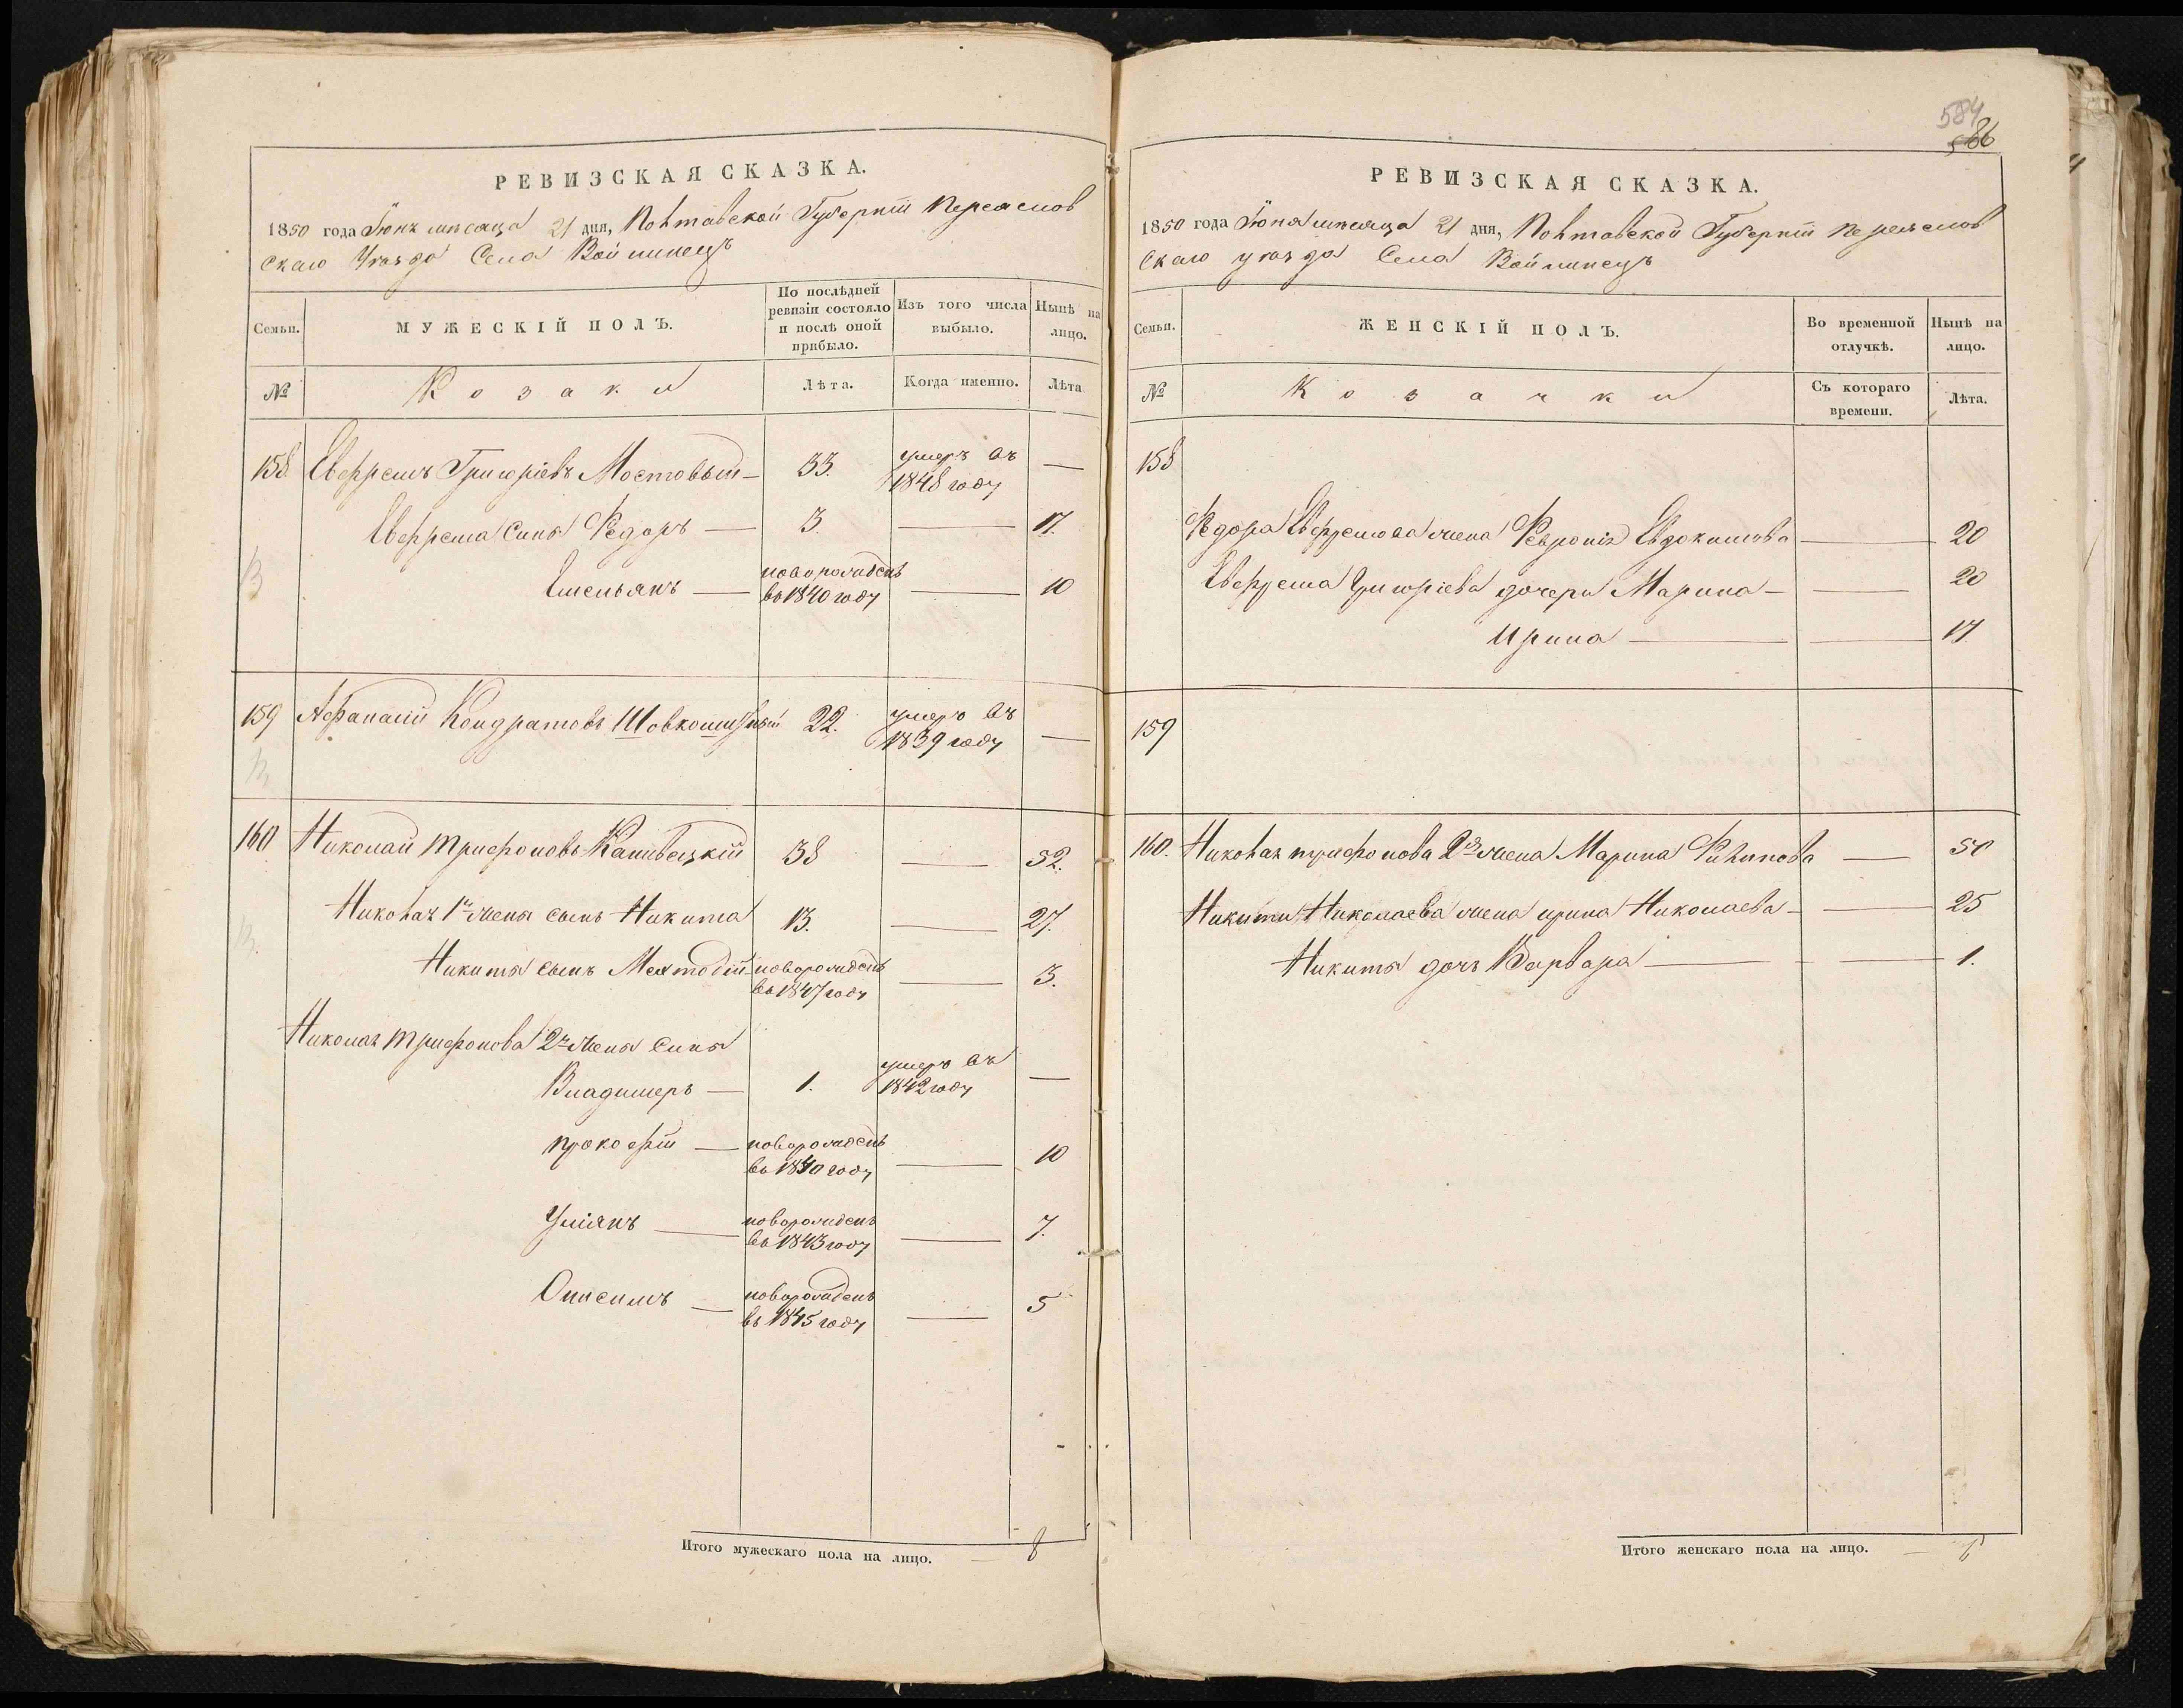 584
586
РЕВИЗСКАЯ СКАЗКА.
1850 года Іюня мѣсяца 21 дня, Полтавской Губерніи Переяслов
скаго Уѣзда Села Войтинецъ
Семьи.
МУЖЕСКІЙ ПОЛЪ.
По послѣдней
ревизіи состояло
и послѣ оной
прибыло.
Изъ того числа
выбыло.
Нынѣ на
лицо.
№
Козаки
Лѣта.
Когда именно.
Лѣта
158 Евфремъ Григоріевъ Мостовый — 33. умеръ въ
1848 году —
Евфрема Сынъ Федоръ — 3. — 17.
Емельянъ — новорожденъ
въ 1840 году — 10
159 Афанасій Кондратовъ 22. умеръ въ
1839 году —
160 Николай Трифоновъ Каневецкій 38 — 52.
Николая 1й жены сынъ Никита 13. — 27.
Никиты сынъ Меѳтодій новорожденъ
въ 1847 году — 3.
Николая Трифонова 2й жены сыны
Владимеръ — 1. умеръ въ
1842 году —
Прокофій — новорожденъ
въ 1840 году — 10
Уліянъ — новорожденъ
въ 1843 году — 7.
Онисимъ — новорожденъ
въ 1845 году — 5
Итого мужескаго пола на лицо. — 8
РЕВИЗСКАЯ СКАЗКА.
1850 года Іюня мѣсяца 21 дня, Полтавской Губерніи Переяслов
скаго уѣзда Села Войтинецъ
Семьи.
ЖЕНСКІЙ ПОЛЪ.
Во временной
отлучкѣ.
Нынѣ на
лицо.
№
Козачки
Съ котораго
времени.
Лѣта.
158
Федора Евфремова жена Февронія Евдокимова — 20
Евфрема Григоріева дочери Марина — — 20
Ирина — — 17
159
160. Николая Трифонова 2я жена Марина Филипова — 50
Никиты Николаева жена Ирина Николаева — — 25
Никиты дочь Варвара — — 1.
Итого женскаго пола на лицо. — 6